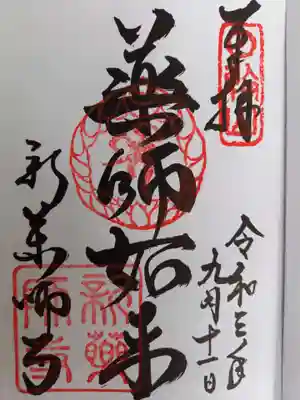 奉拝
令和三年
九月十一日
薬師如来
新薬師寺